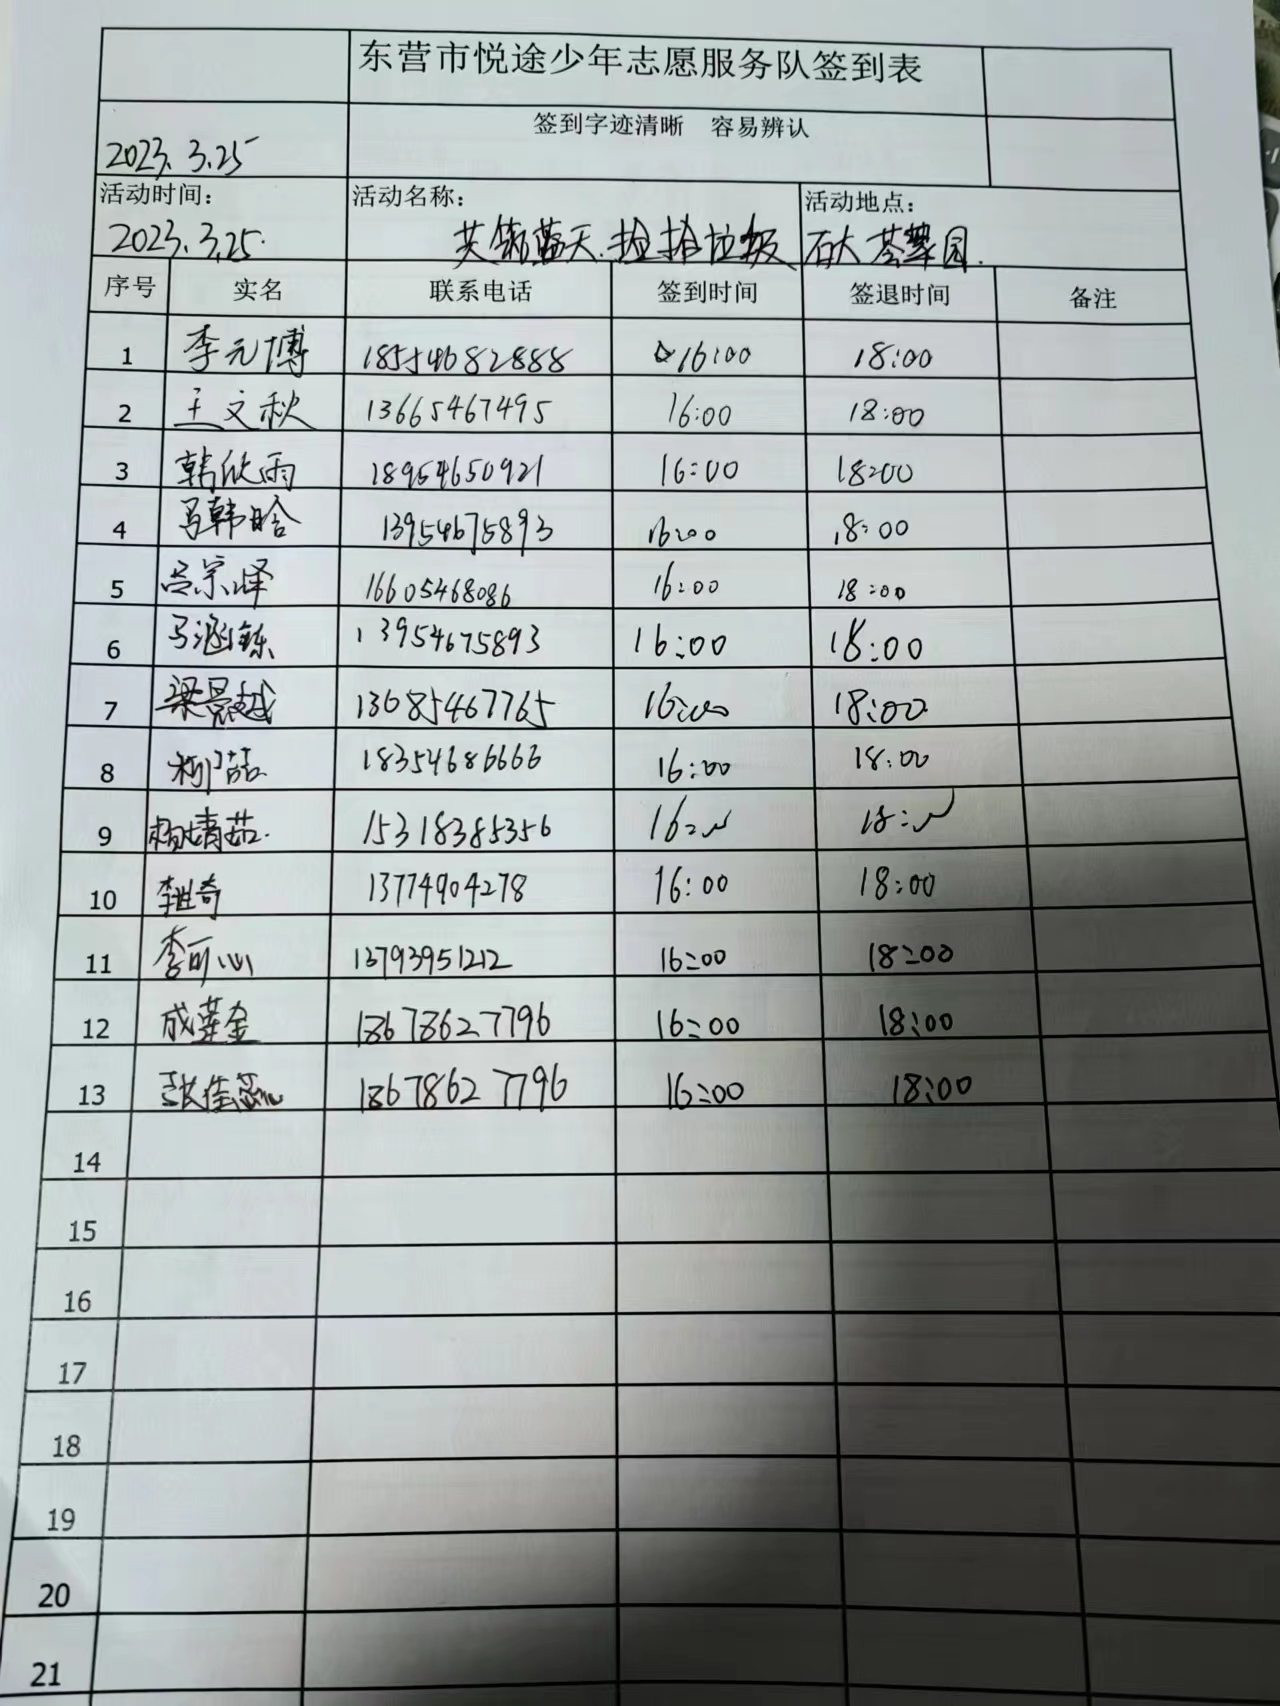 东营市悦途少年志愿服务队签到表
签到字迹清晰 容易辨认
2023.3.25
活动时间: 活动名称: 活动地点:
2023.3.25. 共筑蓝天.捡拾垃圾 石大荟翠园.
序号 实名 联系电话 签到时间 签退时间 备注
1 李元博 18554682888 16:00 18:00
2 王文秋 13665467495 16:00 18:00
3 韩欣雨 18954650921 16:00 18:00
4 马韩晗 13954675893 16:00 18:00
5 吕宗峄 16605468086 16:00 18:00
6 马涵铄 13954675893 16:00 18:00
7 梁景越 13685467765 16:00 18:00
8 柳喆 18354686666 16:00 18:00
9 杨婧茹. 15318385356 16:00 18:00
10 李世奇 13774904278 16:00 18:00
11 李可心 13793951212 16:00 18:00
12 成金 18678627796 16:00 18:00
13 张佳 18678627796 16:00 18:00
14
15
16
17
18
19
20
21